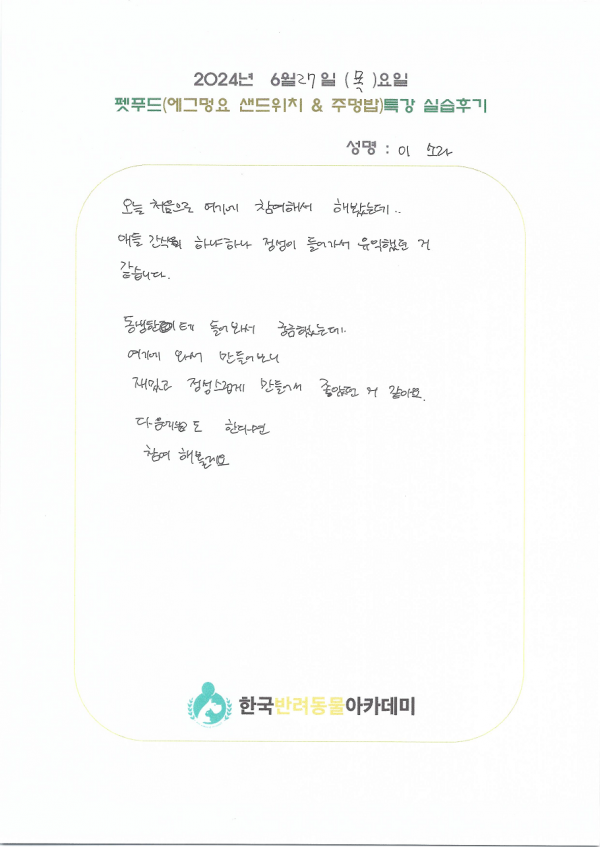 2024년 6월27일 (목)요일
펫푸드(에그멍요 샌드위치 & 주멍밥)특강 실습후기
성명 : 이 소라
오늘 처음으로 여기에 참여해서 해봤는데..
애들 간식이 하나하나 정성이 들어가서 유익했던 것
같습니다.
동생한테 들어와서 궁금했는데..
여기에 와서 만들어보니
재밌고 정성스럽게 만들어서 좋았던 거 같아요.
다음에도 한다면
참여 해볼래요
한국반려동물아카데미